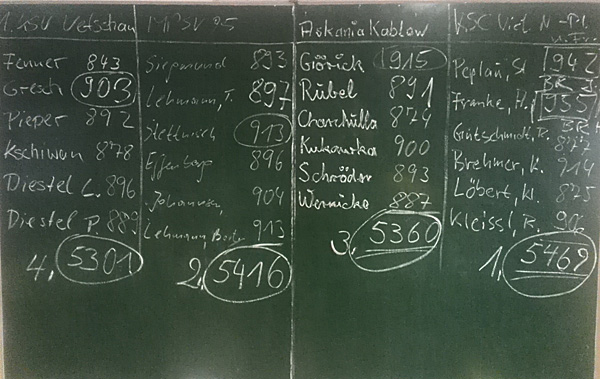 1. KSV Vetschau
Fenner 843
Gresch 903
Pieper 892
Kschiwan 878
Diestel L. 896
Diestel P. 889
4. 5301
MPSV 95
Siegmund 893
Lehmann, T. 897
913
896
904
Lehmann, Bodo 913
2. 5416
Askania Kablow
Görick 915
Rubel 891
Charchulla 874
Kukurka 900
Schröder 893
Wernicke 887
3. 5360
KSC Viel N
Peplau, St 942
BR
Franke, H. 955
BR
Gutschmidt, R. 877
Brehmer, K. 914
Löbert, M. 875
Kleissl, R.
1. 5469